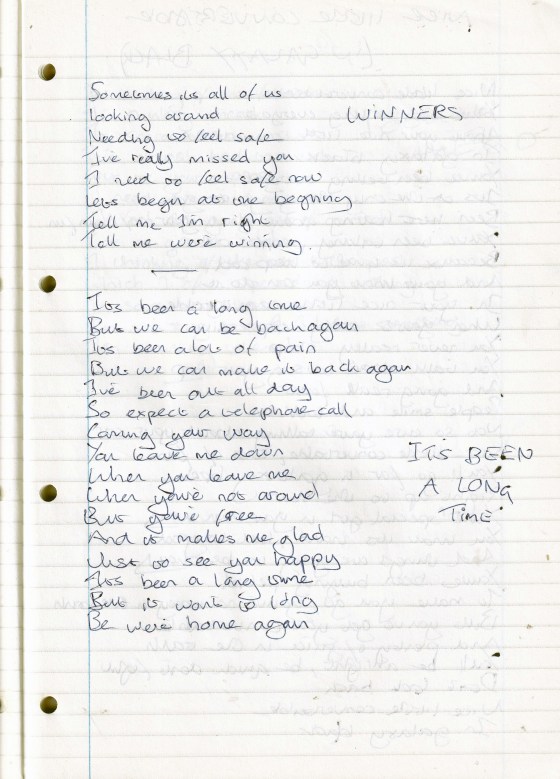 Sometimes its all of us
looking around
WINNERS
Needing to feel safe
I've really missed you
I need to feel safe now
Lets begin at the beginning
Tell me I'm right
Tell me we're winning.
Its been a long time
But we can be back again
Its been alot of pain
But we can make it back again
I've been out all day
So expect a telephone call
Coming your way
You leave me down
When you leave me
When you're not around
But you're free
And it makes me glad
Just to see you happy
Its been a long time
But it wont be long
Be were home again
ITS BEEN
A LONG
TIME